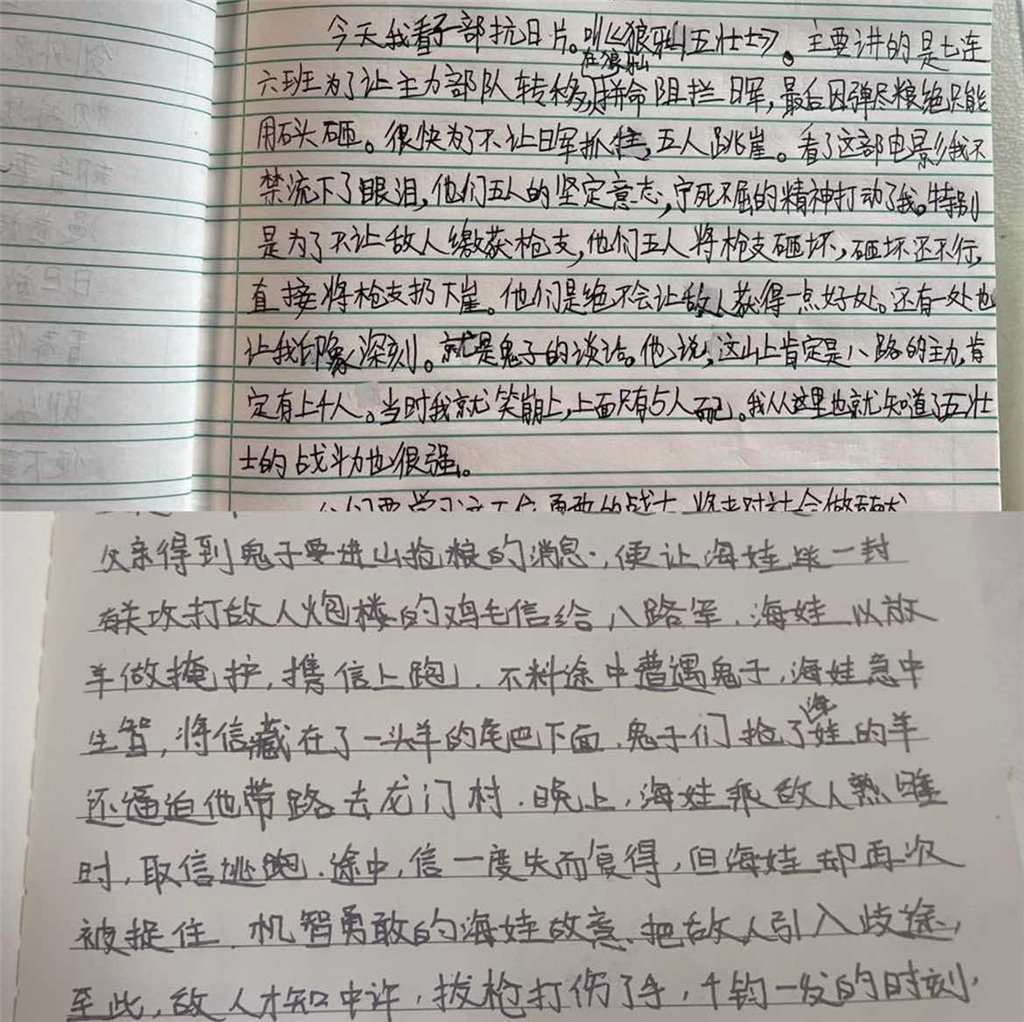 今天我看了部抗日片。叫《狼牙山五壮士》。主要讲的是七连
六班为了让主力部队转移,在狼牙山拼命阻拦日军,最后因弹尽粮绝只能
用石头砸。很快为了不让日军抓住,五人跳崖。看了这部电影我不
禁流下了眼泪,他们五人的坚定意志,宁死不屈的精神打动了我。特别
是为了不让敌人缴获枪支,他们五人将枪支砸坏,砸坏还不行,
直接将枪支扔下崖。他们是绝不会让敌人获得一点好处。还有一处也
让我印象深刻。就是鬼子的谈话。他说,这山上肯定是八路的主力,肯
定有上千人。当时我就笑崩上,上面只有5人而已。我从这里也就知道了五壮
士的战斗力也很强。
父亲得到鬼子要进山抢粮的消息,便让海娃送一封
有关攻打敌人炮楼的鸡毛信给八路军.海娃以放
羊做掩护,携信上跑.不料途中遭遇鬼子,海娃急中
生智,将信藏在了一头羊的尾巴下面.鬼子们抢了海娃的羊
还逼迫他带路去龙门村.晚上,海娃乘敌人熟睡
时,取信逃跑.途中,信一度失而复得,但海娃却再次
被捉住.机智勇敢的海娃故意把敌人引入歧途,
至此,敌人才知中计,拔枪打伤了手,千钧一发的时刻,